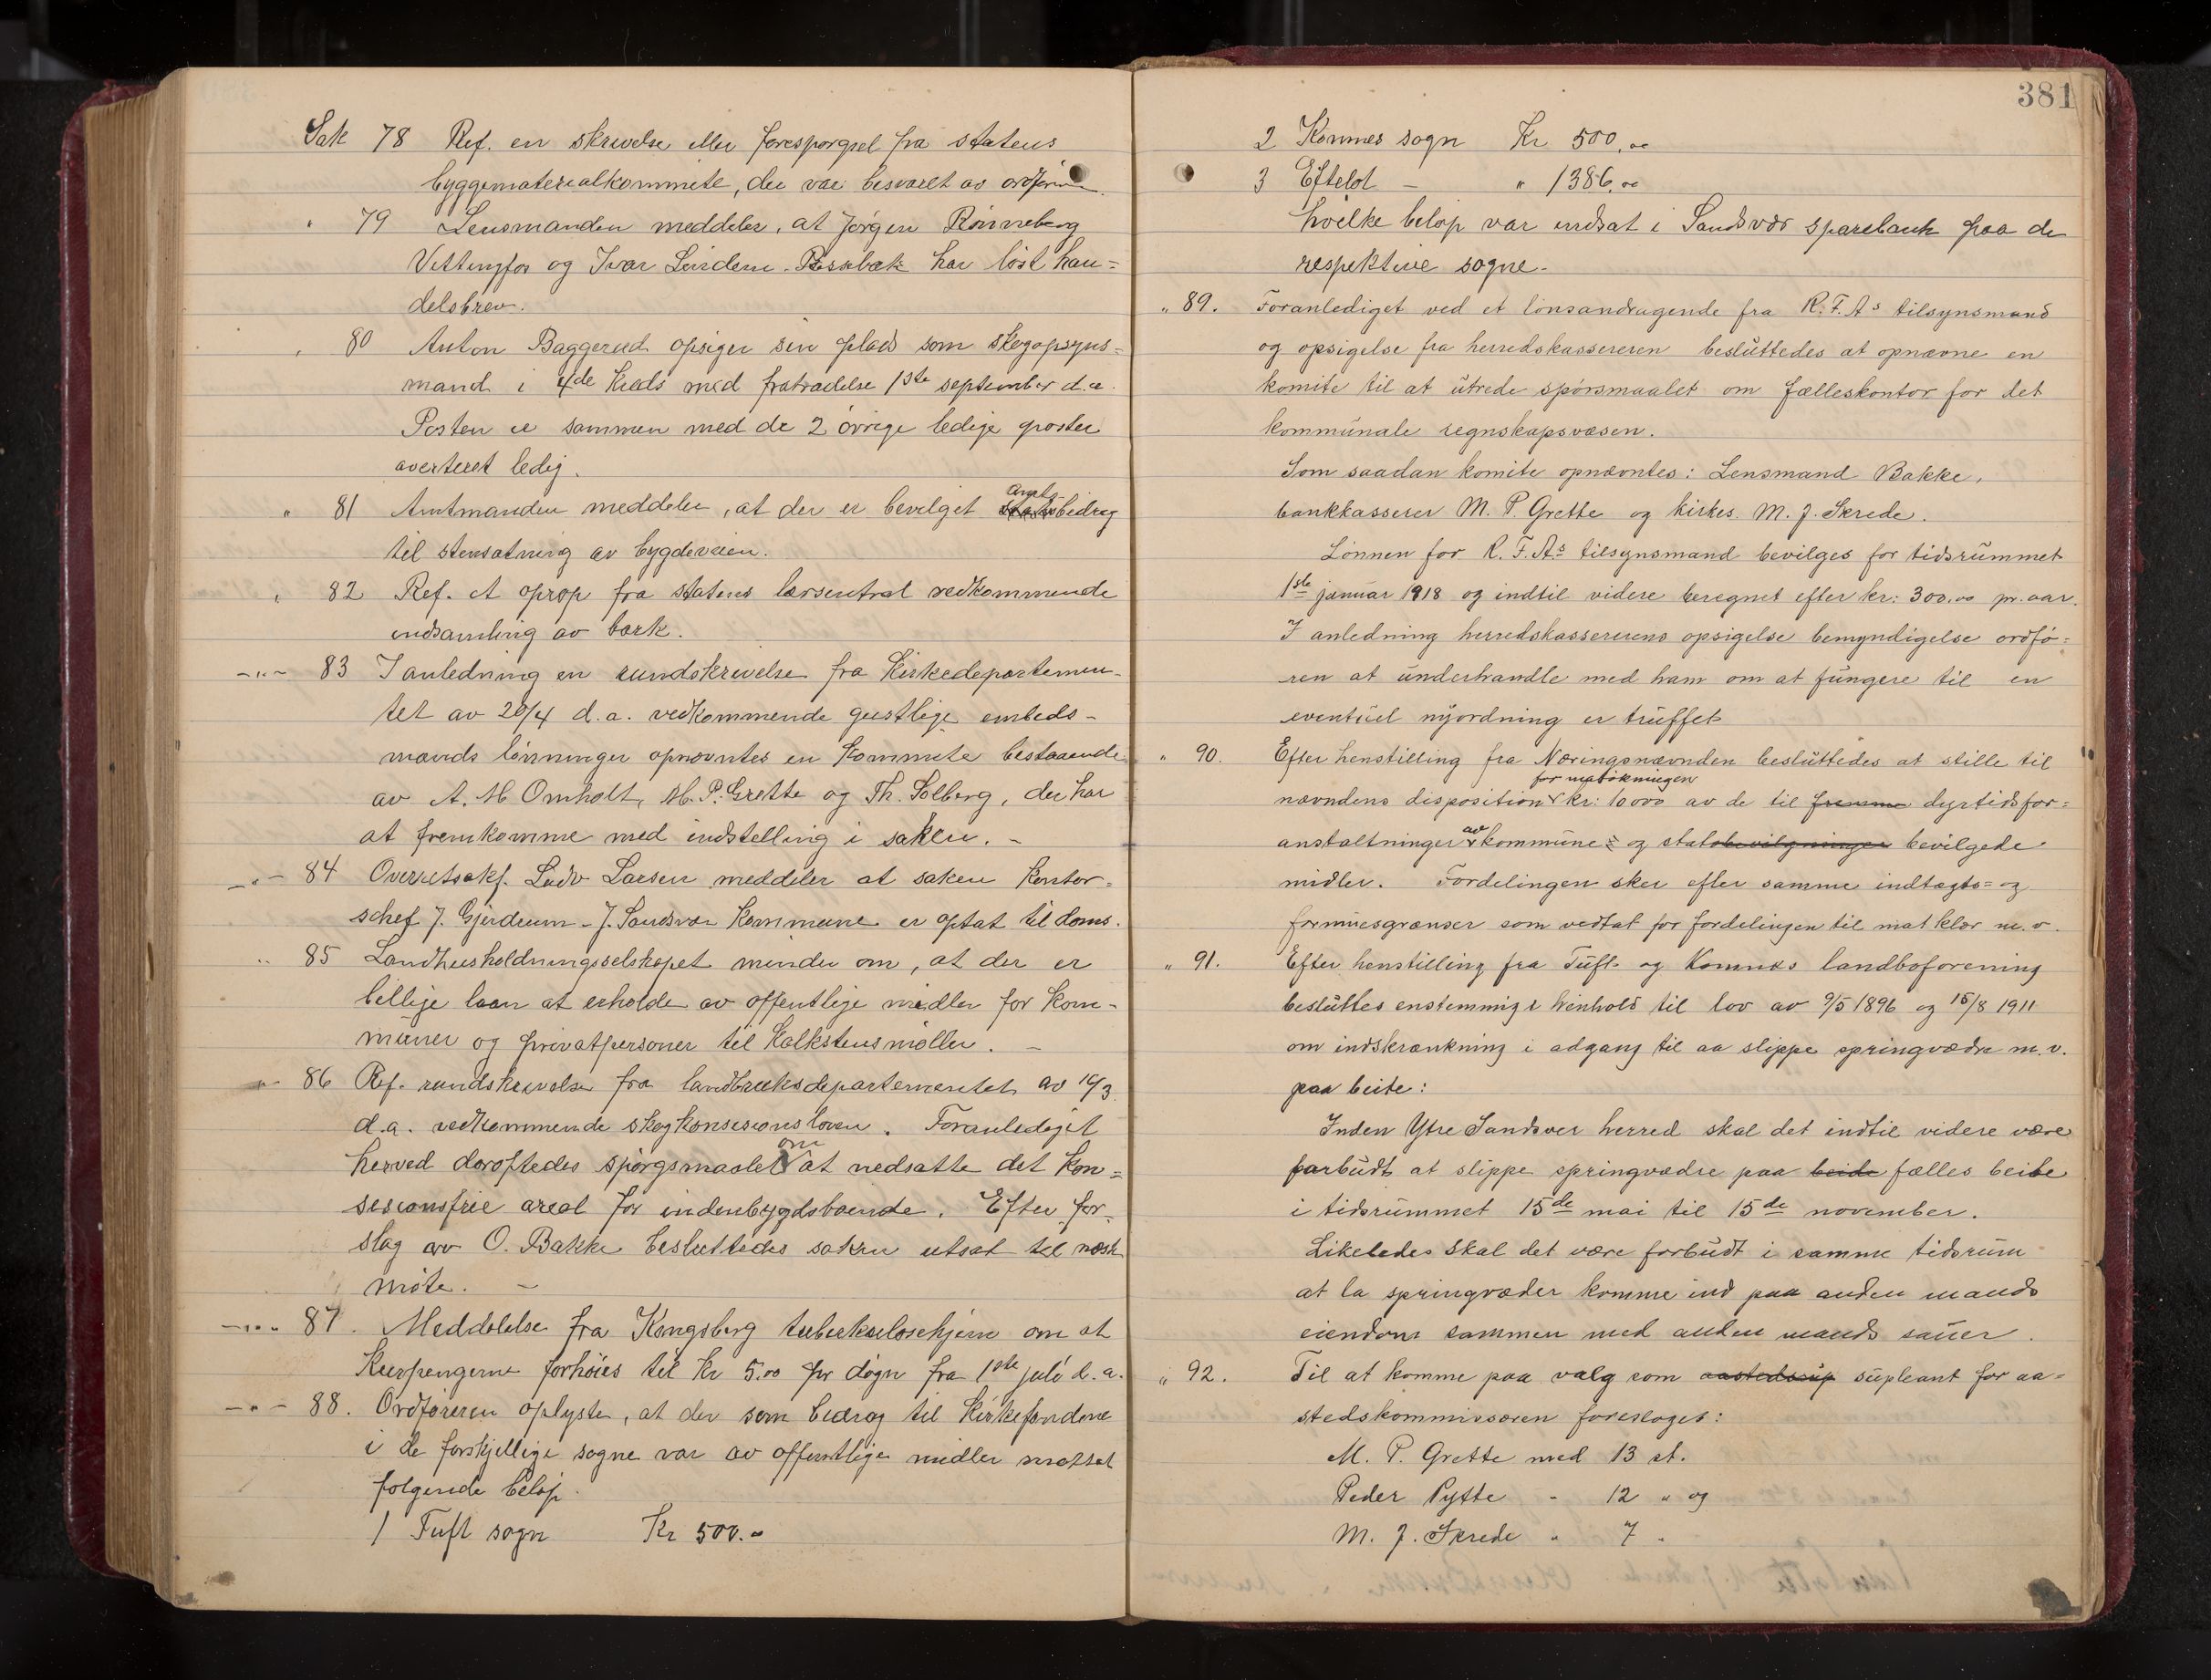 Sak 78 Ref. en skrivelse eller forespørgsel fra statens
byggematerialkommite, der var besvaret av ordføreren.
" 79 Lensmanden meddeler, at Jørgen Rønneberg
Vittingfos og Ivar Lindem har løst han=
delsbrev.
" 80 Anton Baggerud opsiger sin plads som skogopsyns=
mand i 4de kreds med fratrædelse 1ste september d.a.
Posten er sammen med de 2 øvrige ledige poster
averteret ledig.
" 81 Amtmanden meddeler, at der er bevilget amtsbidrag
til stensætning av bygdeveien.
" 82 Ref. et oprop fra statens lærsentral vedkommende
indsamling av bark.
-"- 83 I anledning en rundskrivelse fra Kirkedepartemen-
tet av 20/4 d.a. vedkommende geistlige embeds-
mænds lønninger opnævntes en kommite bestaaende
av A. M. Omholt, M. P. Grette og Th. Solberg, der har
at fremkomme med indstelling i saken. -
-"- 84 Overretssakf. Ludv Larsen meddeler at saken kontor=
schef J. Gjerdeum - Y. Sandsvær kommune er optat til doms.
" 85 Landhusholdningsselskapet minder om, at der er
billige laan at erholde av offentlige midler for kom-
muner og privatpersoner til kalkstensmøller. -
" 86 Ref. rundskrivelse fra landbruksdepartementet av 19/3
d.a. vedkommende skogkonsesionsloven. Foranlediget
herved drøftedes spørgsmaalet om at nedsætte det kon=
sesionsfrie areal for indenbygdsboende. Efter for-
slag av O. Bakke besluttedes saken utsat til næste
møte. -
-"- 87. Meddelelse fra Kongsberg tuberkulosehjem om at
Kurpengerne forhøies til kr 5.00 pr døgn fra 1ste juli d.a.
-"- 88. Ordføreren oplyste, at der som bidrag til kirkefondene
i de forskjellige sogne var av offentlige midler mottat
følgende beløp.
1 Tuft sogn Kr 500.00
381
2 Komnes sogn Kr 500,00
3 Efteløt - " 1386,00
hvilke beløp var indsat i Sandsvær sparebank paa de
respektive sogne.
" 89. Foranlediget ved et lønsandragende fra R.F.As tilsynsmand
og opsigelse fra herredskassereren besluttedes at opnævne en
komite til at utrede spørsmaalet om fælleskontor for det
kommunale regnskapsvæsen.
Som saadan komite opnævntes: Lensmand Bakke,
bankkasserer M. P. Grette og kirkes. M. J. Skrede.
Lønnen for R.F.As tilsynsmand bevilges for tidsrummet
1ste januar 1918 og indtil videre beregnet efter kr: 300.00 pr. aar.
I anledning herredskassererens opsigelse bemyndigelse ordfø=
ren at underhandle med ham om at fungere til en
eventuel nyordning er truffet
" 90. Efter henstilling fra Næringsnævnden besluttedes at stille til
nævndens disposition for matøkningen kr: 10000 av de til fremme dyrtidsfor=
anstaltninger av kommune= og statsbevilgninger bevilgede
midler. Fordelingen sker efter samme indtægts= og
formuesgrænser som vedtat for fordelingen til mat klær m.v.
" 91. Efter henstilling fra Tuft og Komnes landboforening
besluttes enstemmig i henhold til lov av 9/5 1896 og 15/8 1911
om indskrænkning i adgang til aa slippe springvædre m.v.
paa beite:
Inden Ytre Sandsver herred skal det indtil videre være
forbudt at slippe springvædre paa beide fælles beite
i tidsrummet 15de mai til 15de november.
Likeledes skal det være forbudt i samme tidsrum
at la springvæder komme ind paa anden mands
eiendom sammen med anden mands sauer.
" 92. Til at komme paa valg som aastedssup supleant for aa=
stedskommissæren foresloges:
M. P. Grette med 13 st.
Peder Pytte - 12 " og
M. J. Skrede " 7 "